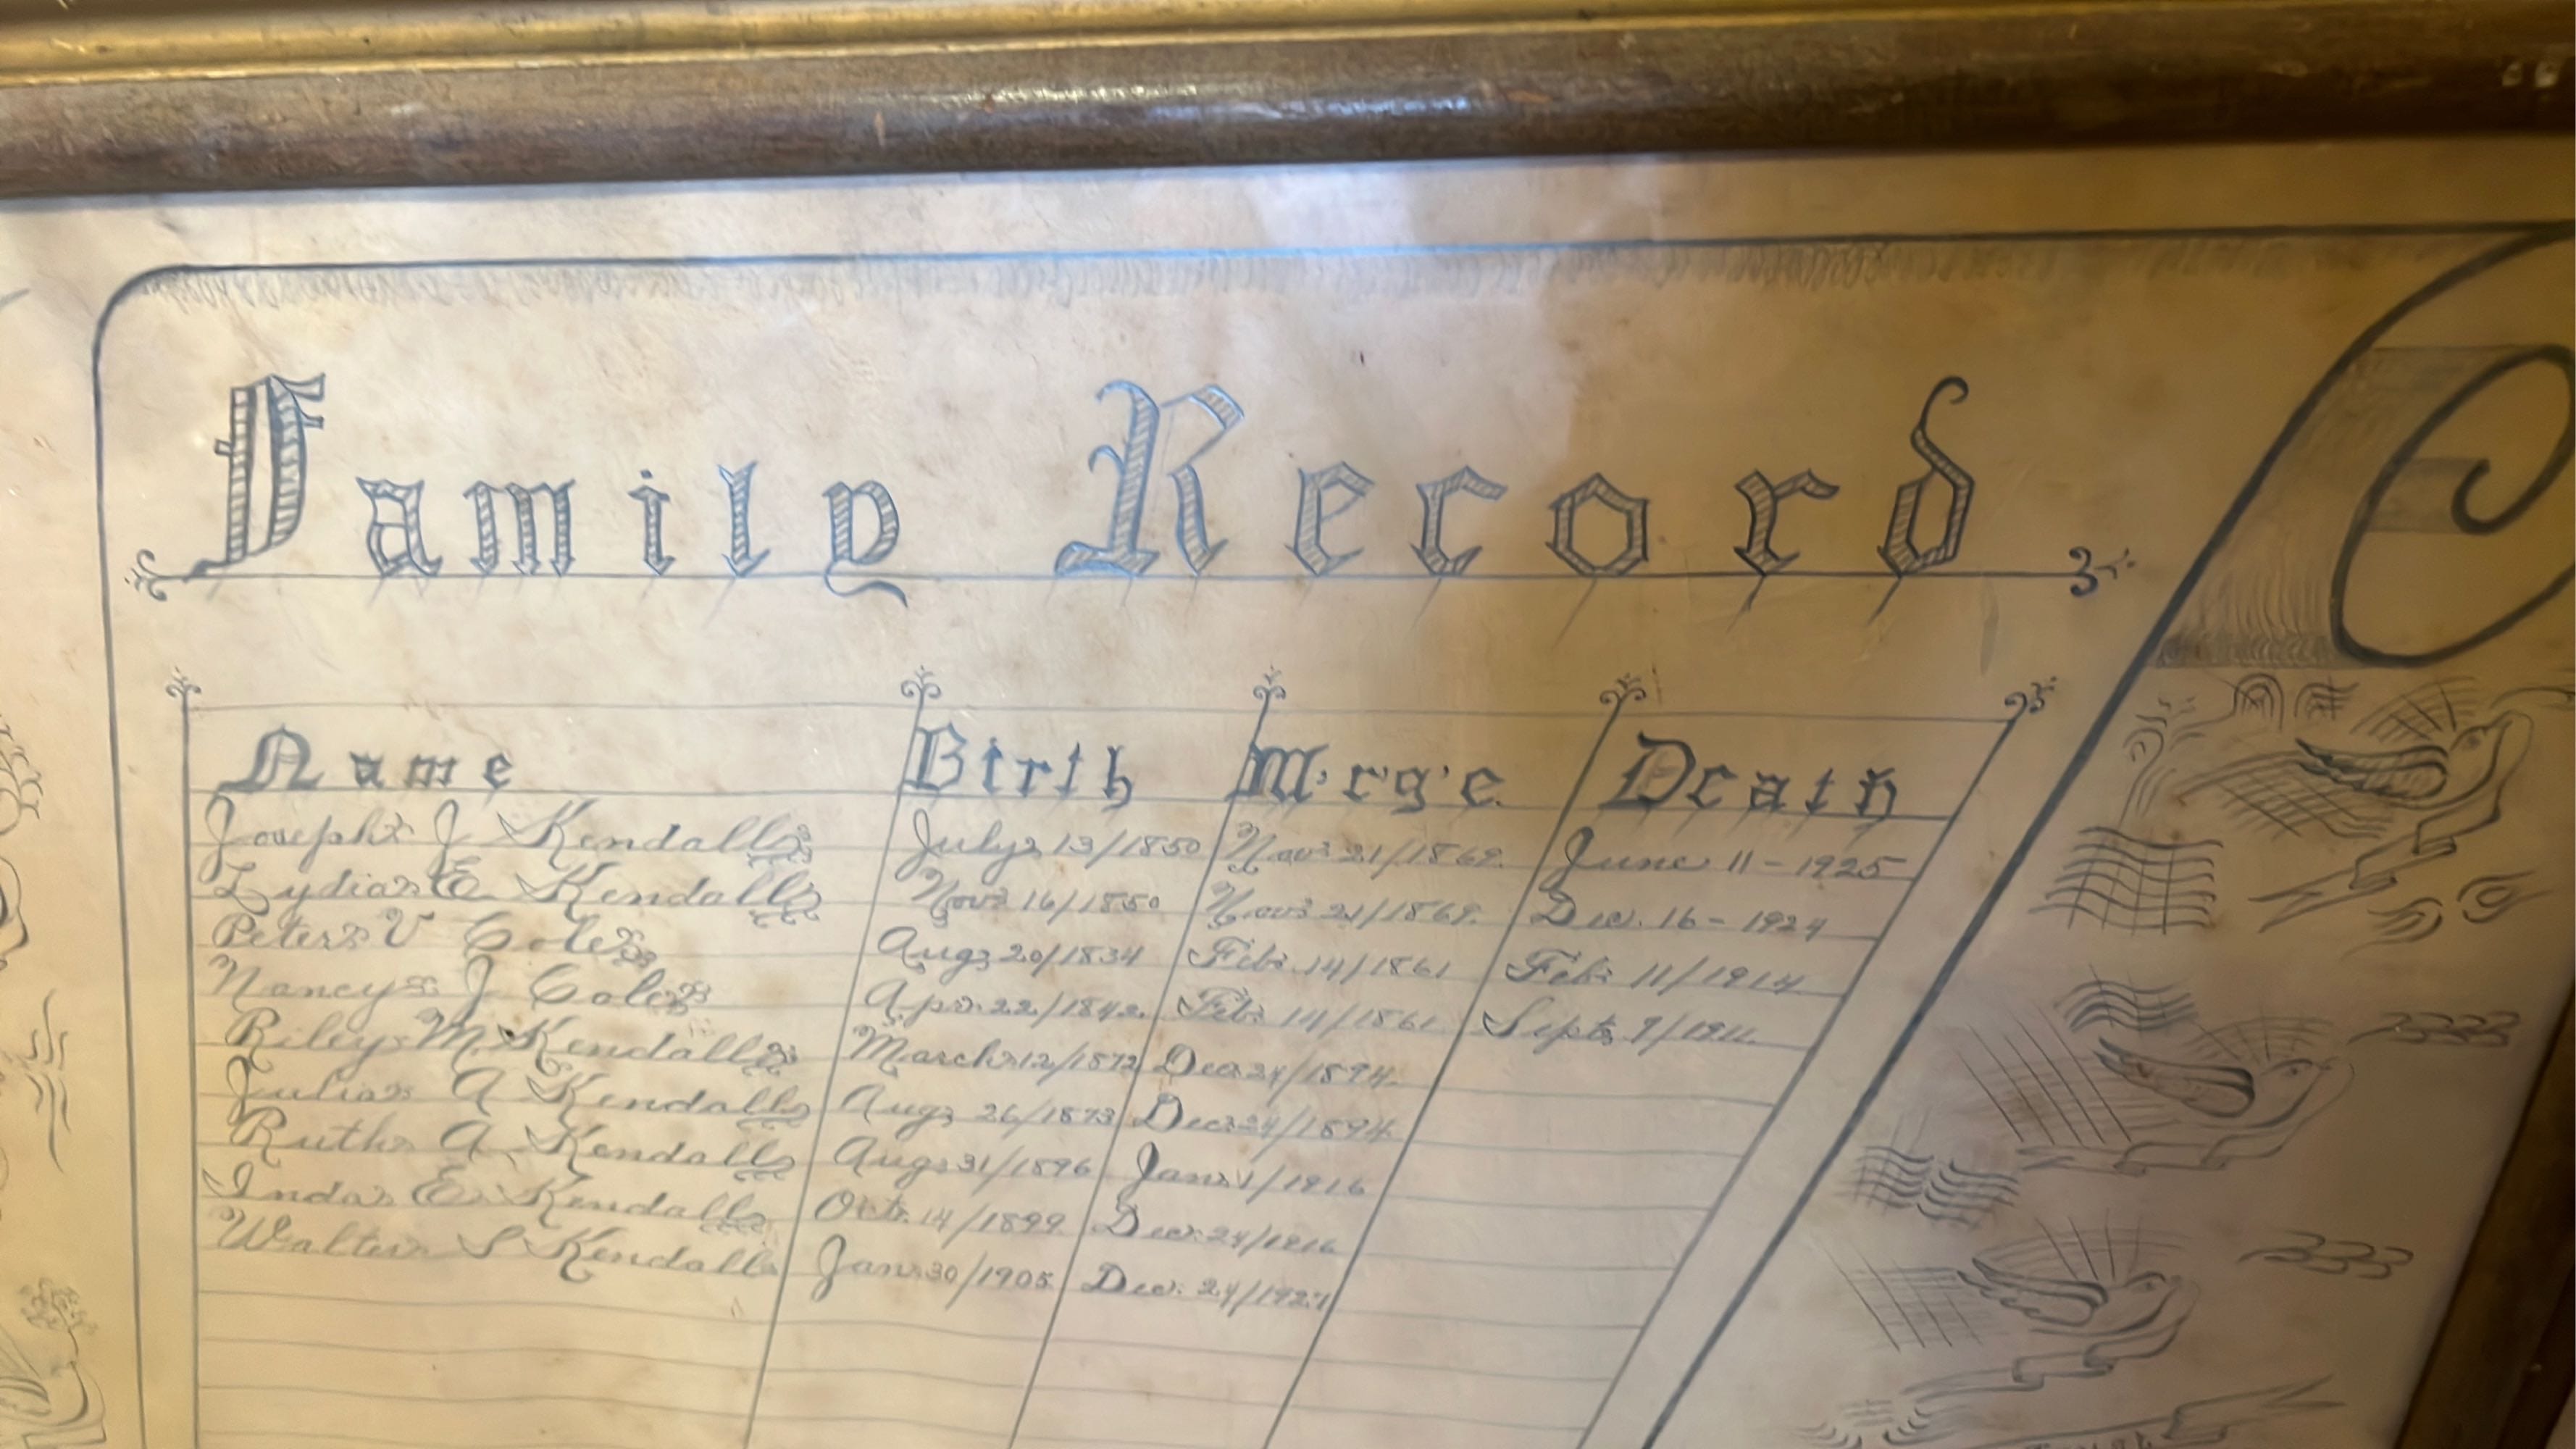 Family Record
Name Birth M'r'g'e. Death
Joseph J Kendall July 13/1850 Nov 21/1869. June 11 - 1925
Lydia E Kendall Nov 16/1850 Nov 21/1869. Dec. 16 - 1924
Peter V Cole Aug 20/1834 Feb 14/1861 Feb 11/1914
Nancy J Cole Apr 22/1842. Feb 14/1861 Sept 9/1911.
Riley M. Kendall March 12/1872 Dec 24/1894.
Julia A Kendall Aug 26/1873 Dec 24/1894.
Ruth A. Kendall Aug 31/1896 Jan 1/1916
Inda E. Kendall Oct. 14/1899. Dec 24/1916
Walter S Kendall Jan 30/1905. Dec. 24/1927